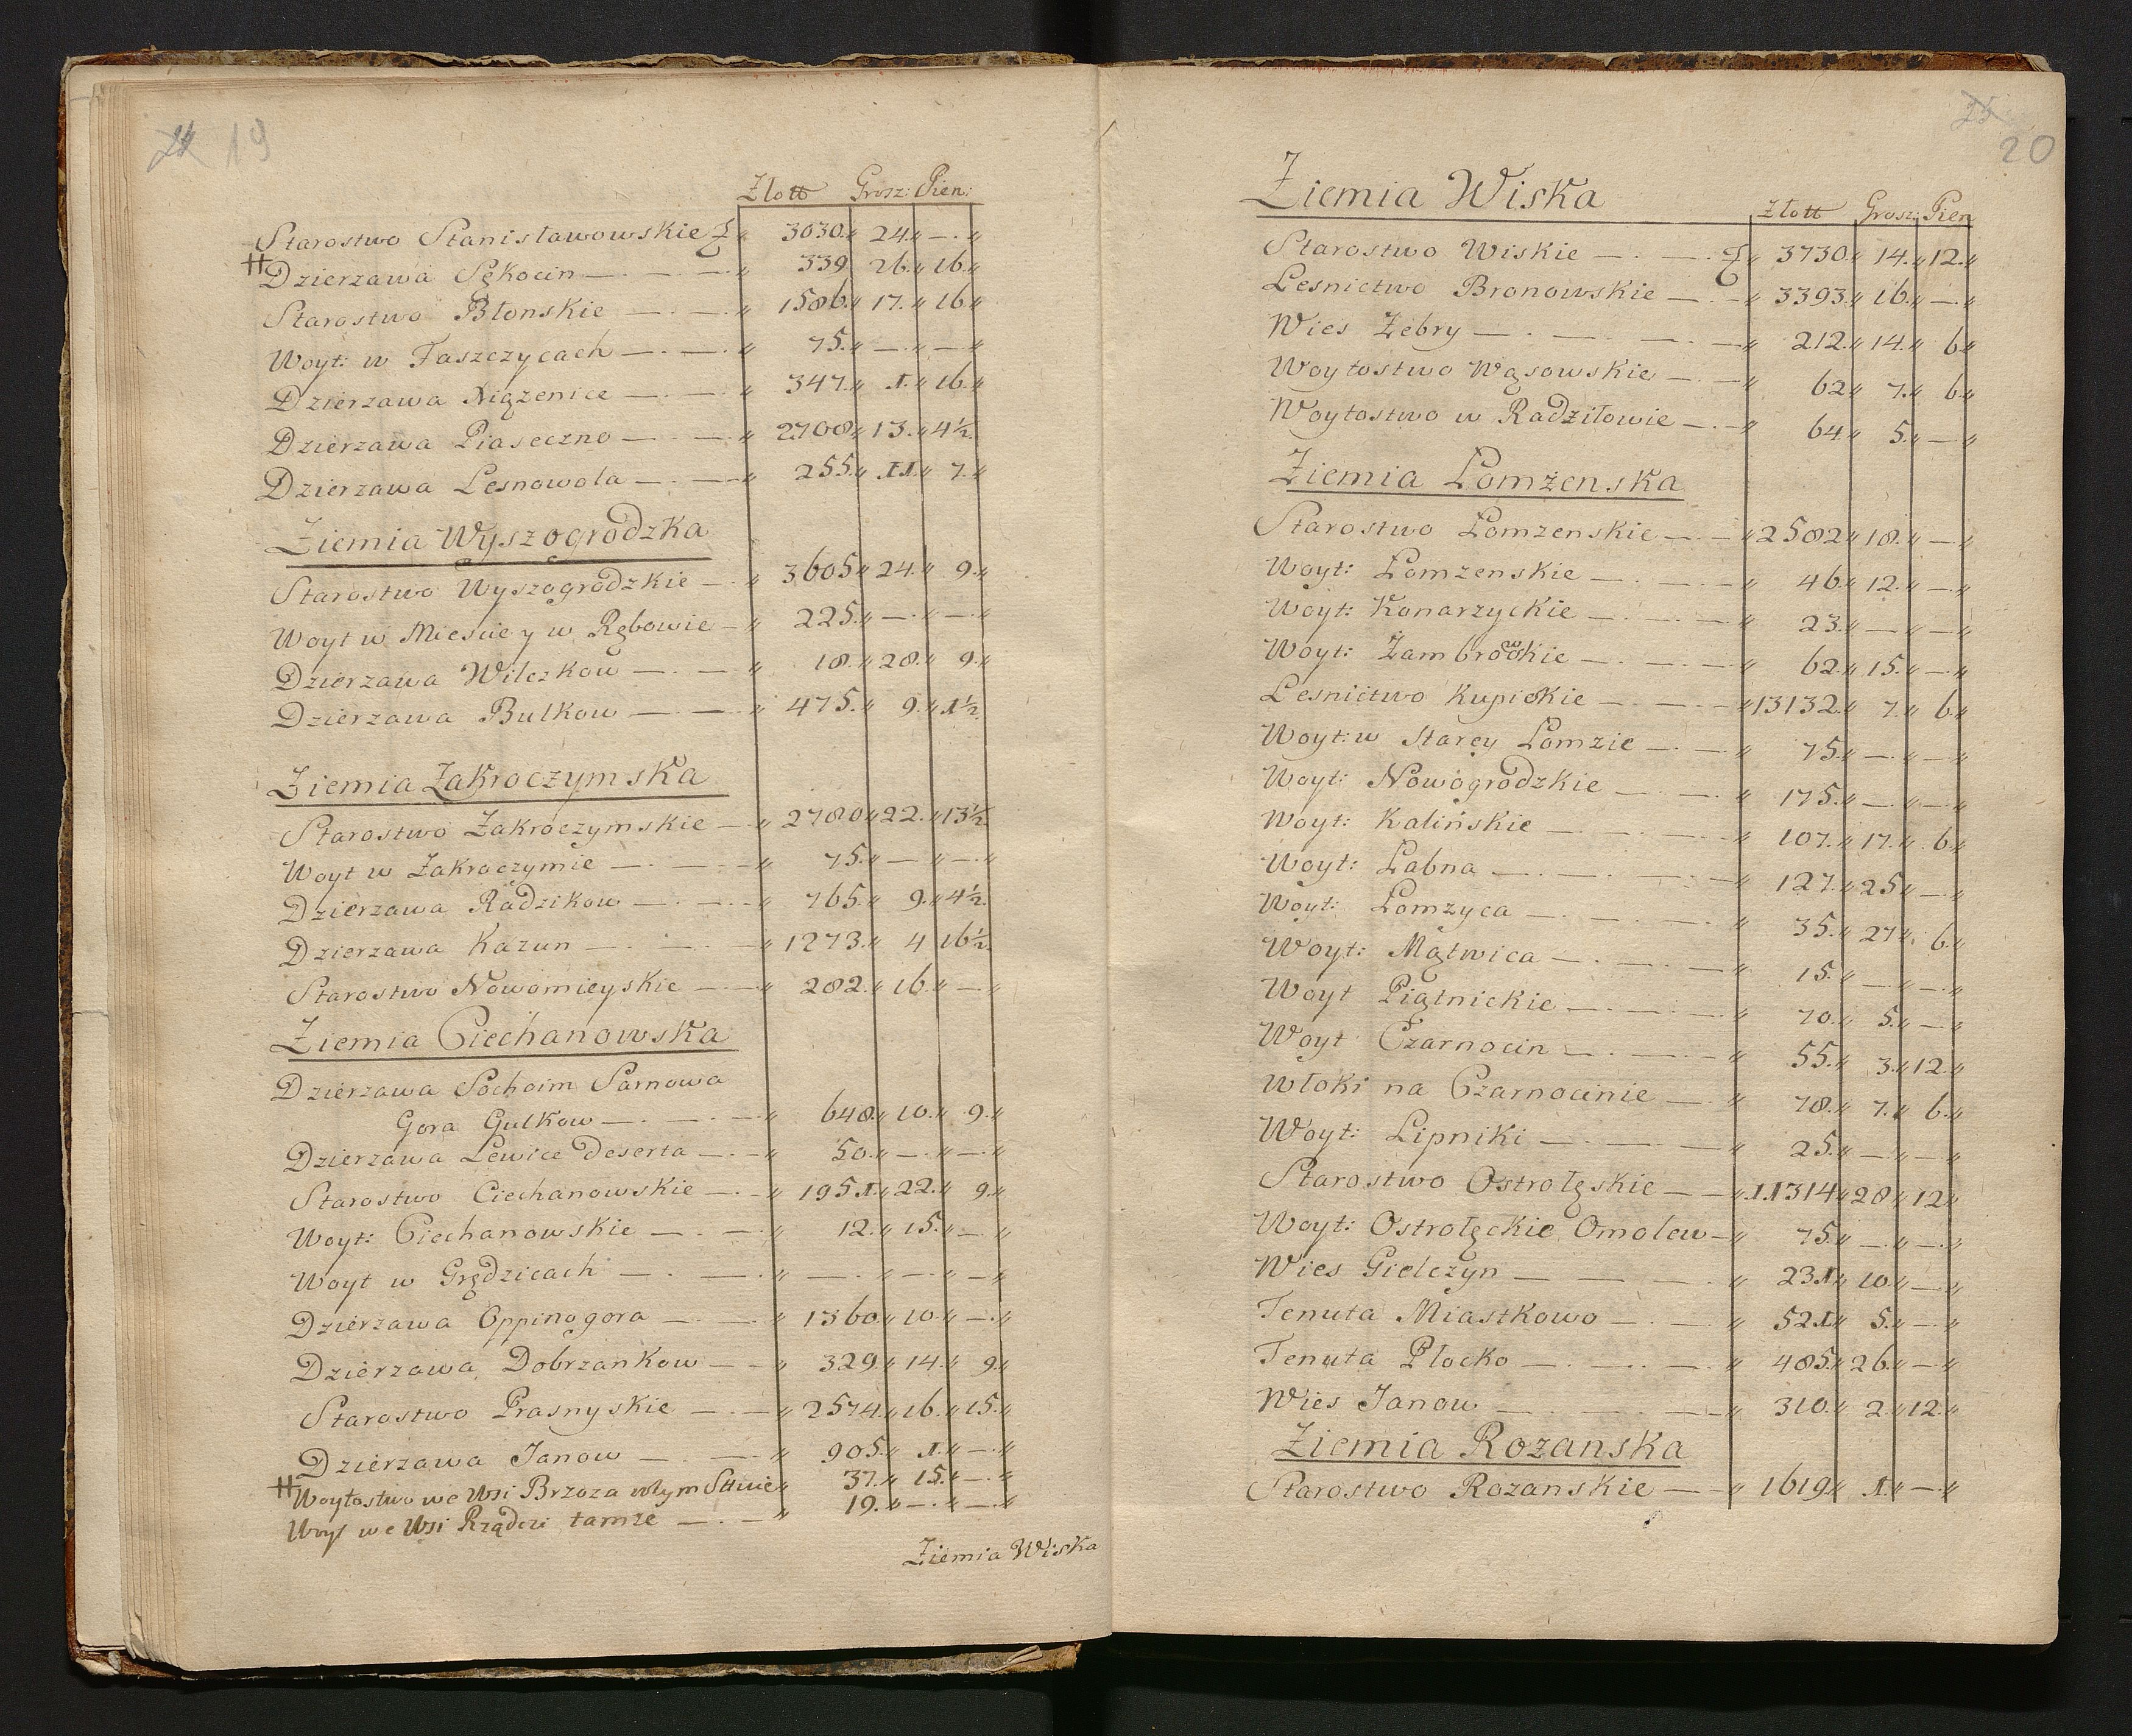 24 19
Złott Grosz: Pien:
Starostwo Stanisławowskie " 3030." 24." —."
# Dzierzawa Sękocin —.—.— " 339 26." 16."
Starostwo Błonskie —.— " 1586." 17." 16."
Woyt: w Faszczycach —.— " 75." —." —."
Dzierzawa Niązenice —.— " 347." 1." 16."
Dzierzawa Piaseczno —.— " 2708." 13." 4½.
Dzierzawa Lesnowola —.— " 255." 11." 7."
Ziemia Wyszogrodzka
Starostwo Wyszogrodzkie — " 3605" 24." 9."
Woyt w Miescie y w Rębowie — " 225." —." —."
Dzierzawa Wilczkow —.— " 18." 28." 9."
Dzierzawa Bulkow —.— " 475." 9." 1½.
Ziemia Zakroczymska
Starostwo Zakroczymskie — " 2780" 22." 13½.
Woyt w Zakroczymie —.— " 75." — " —."
Dzierzawa Radzikow —.— " 765." 9." 4½.
Dzierzawa Kazun —.— " 1273." 4 16½.
Starostwo Nowomieyskie —.— " 282." 16." —."
Ziemia Ciechanowska
Dzierzawa Sochocim Sarnowa
Gora Gutkow —.—.— " 648." 10." 9."
Dzierzawa Lewice Deserta —.— " 50." —." —."
Starostwo Ciechanowskie —.— " 1951." 22." 9."
Woyt: Ciechanowskie —.—.— " 12." 15." — "
Woyt w Grędzicach —.—.— " —.— " —." — "
Dzierzawa Oppinogora —.— " 1360." 10." —."
Dzierzawa Dobrzankow — — " 329." 14." 9."
Starostwo Prasnyskie —.— " 2574." 16." 15."
Dzierzawa Janow —.—.— " 905." 1." —."
# Woytostwo we Wsi Brzoza w tym Sttwie " 37." 15." —."
Woyt we Wsi Rządzi tamze —.— " 19." —." —."
Ziemia Wiska
25
20
Ziemia Wiska
Złott Grosz: Pien
Starostwo Wiskie —.—. " 3730." 14." 12."
Lesnictwo Bronowskie —.— " 3393." 16." —."
Wies Zebry —.—.—.— " 212." 14." 6"
Woytostwo Wąsowskie —.— " 62" 7." 6."
Woytostwo w Radziłowie —.— " 64." 5." —."
Ziemia Łomzenska
Starostwo Łomzenskie —.— " 2582" 18." —."
Woyt: Łomzenskie —.—.— " 46." 12." —."
Woyt: Konarzyckie —.—.— " 23." — " —"
Woyt: Zambrowskie —.—.— " 62." 15." —."
Lesnictwo Kupiskie —.—.— " 13132." 7." 6."
Woyt: w Starey Łomzie —.— " 75." —." —"
Woyt: Nowogrodzkie —.— " 175." —." —."
Woyt: Kalińskie —.—.— " 107." 17." 6."
Woyt: Łabna —.—.—.— " 127." 25" —."
Woyt: Łomzyca —.—.— " 35." 27" 6."
Woyt: Mątwica —.—.— " 15." —." —."
Woyt Piątnickie —.—.— " 70." 5." —."
Woyt Czarnocin —.—.— " 55." 3." 12."
Włoki na Czarnocinie —.— " 78." 7." 6."
Woyt: Lipniki —.—.— " 25." —." —"
Starostwo Ostrołęskie — — " 11314" 28" 12"
Woyt: Ostrołęckie Omolew — " 75." —." —."
Wies Gielczyn — — — —. " 231" 10." —."
Tenuta Miastkowo —.— " 521" 5." —."
Tenuta Płocko —.—.— " 485." 26." —."
Wies Janow —.—.— " 310." 2." 12."
Ziemia Rozanska
Starostwo Rozanskie —.— " 1619" 1." —."